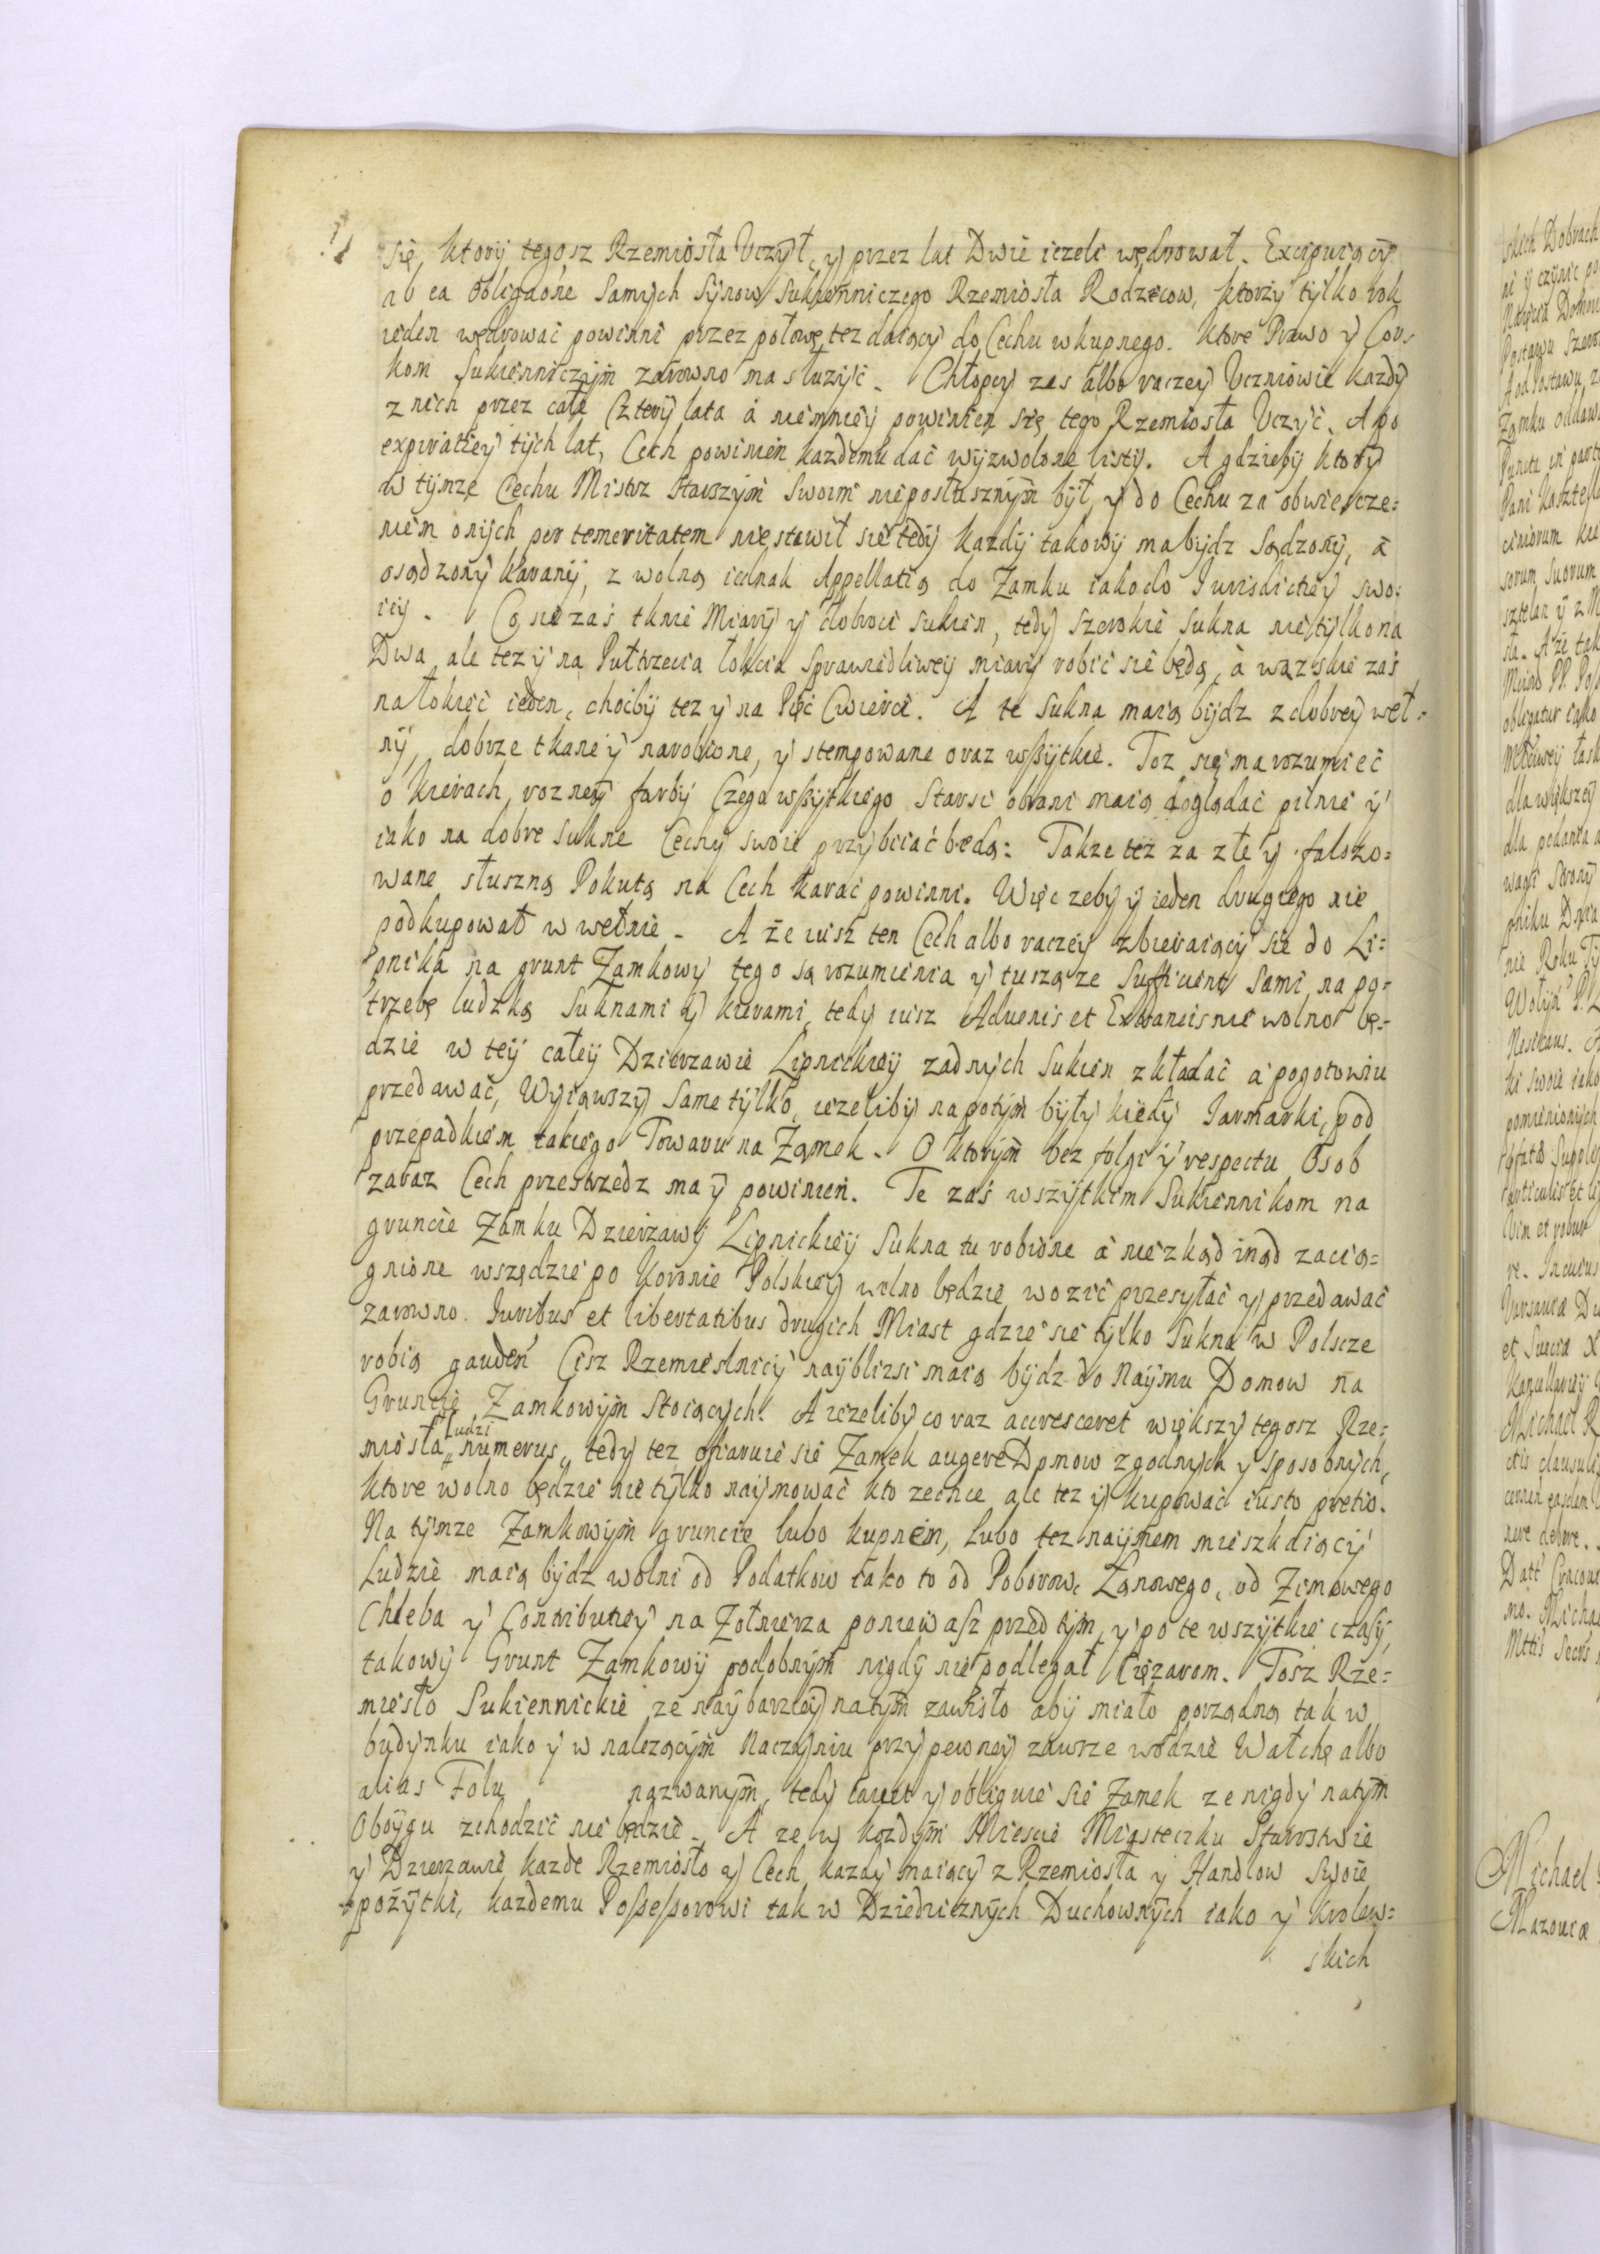 się, ktory tegosz Rzemiosła Uczył, y przez lat Dwie iezeli wędrował. Excipuiący
ab ea obligaōne samych synow sukienniczego Rzemiosła Rodzicow, ktorzy tylko rok
ieden wędrować powinni przez połowę tez daiący do Cechu wkupnego. Ktore Prawo y Cor-
kom Sukienniczym zarowno ma służyć. Chłopcy zas albo raczey Uczniowie kazdy
z nich przez całe Cztery lata a niemniey powinien się tego Rzemiosła Uczyć. A po
expiratiey tych lat, Cech powinien kazdemu dać wyzwolone listy. A gdzieby ktory
w tymze Cechu Mistrz Starszym swoim nieposłusznym był, y do Cechu za obwiescze=
niem onych per temeritatem niestawił sie tedy kazdy takowy ma bydz sądzony, a
osądzony karany, z wolną iednak Appellatią do Zamku iako do Iurisdictiey swo=
iey. Co sie zas tknie Miary y dobroci sukien, tedy szerokie sukna nietylko na
Dwa ale tez y na Pułtrzecia łokcia sprawiedliwey miary robić sie będą, a wązskie zaś
na łokieć ieden, choćby tez y na Pięć Cwierci. A te Sukna maią bydz z dobrey weł=
ny, dobrze tkane y narobione, y stempowane oraz wszytkie. Toz się ma rozumieć
o kierach rozney farby Czego wszytkiego Starsi obrani maią doglądać pilnie y
iako na dobre sukne Cechy swoie przybiiać będą: Takze tez za złe y falszo=
wane słuszną Pokutą na Cech karać powinni. Więc zeby y ieden drugiego nie
podkupował w wełnie. A że iusz ten Cech albo raczey zbieraiący sie do Li=
pnika na grunt Zamkowy tego są rozumienia y tuszą ze sufficient sami na po=
trzebę ludzką Suknami y kierami, tedy iusz Advenis et Extraneis nie wolno bę=
dzie w tey całey Dzierzawie Lipnickiey zadnych Sukien zkładać a pogotowiu
przedawać, Wyiąwszy same tylko, iezeliby napotym były kiedy Iarmarki, pod
przepadkiem takiego Towaru na Zamek. O ktorym bez folgi y respectu Osob
zaraz Cech przestrzedz ma y powinien. Te zaś wszytkim Sukiennikom na
gruncie Zamku Dzierzawy Lipnickiey Sukna tu robione a niezkąd inąd zacią=
gnione wszędzie po Koronie Polskiey wolno będzie wozić przesyłać y przedawać
zarowno. Iuribus et libertatibus drugich Miast gdzie sie tylko Sukna w Polscze
robią gauden Cisz Rzemieslnicy nayblizsi maią bydz do Naymu Domow na
Gruncie Zamkowym Stoiących. A iezeliby co raz accresceret większy tegosz Rze=
miosła Ludzi numerus, tedy tez ofiaruie sie Zamek augere Domow zgodnych y sposobnych,
ktore wolno będzie nie tylko naymować kto zechce ale tez y kupować iusto pretio.
Na tymze Zamkowym gruncie lubo kupnem, Lubo tez naymem mieszkaiący
Ludzie maią bydz wolni od Podatkow iako to od Poborow, Łanowego, od Zimowego
Chleba y Contributiey na Zołnierza poniewasz przed tym, y po te wszytkie czasy,
takowy Grunt Zamkowy podobnym nigdy nie podlegał Ciężarom. Tosz Rze=
miesło Sukiennickie ze naybarziey natym zawisło aby miało porządną tak w
budynku iako y w nalezącym Naczyniu przy pewney zawsze wodzie Wałchę albo
alias Folu nazwanym, tedy cavet y obliguie sie Zamek ze nigdy natym
Oboygu zchodzić nie będzie. A ze w kozdym Miescie Miasteczku Starostwie
y Dzierzawie kazde Rzemiosło y Cech kazdy maiący z Rzemiosła y Handlow swoie
pożytki, kazdemu Possessorowi tak w Dziedzicznych Duchownych iako y Krolew=
skich
Michael
Mazouiæ